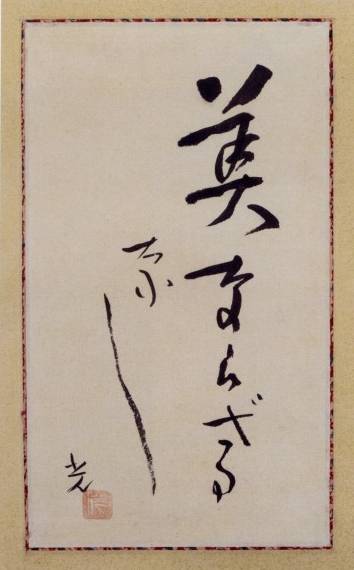 美ならざる
なし
光